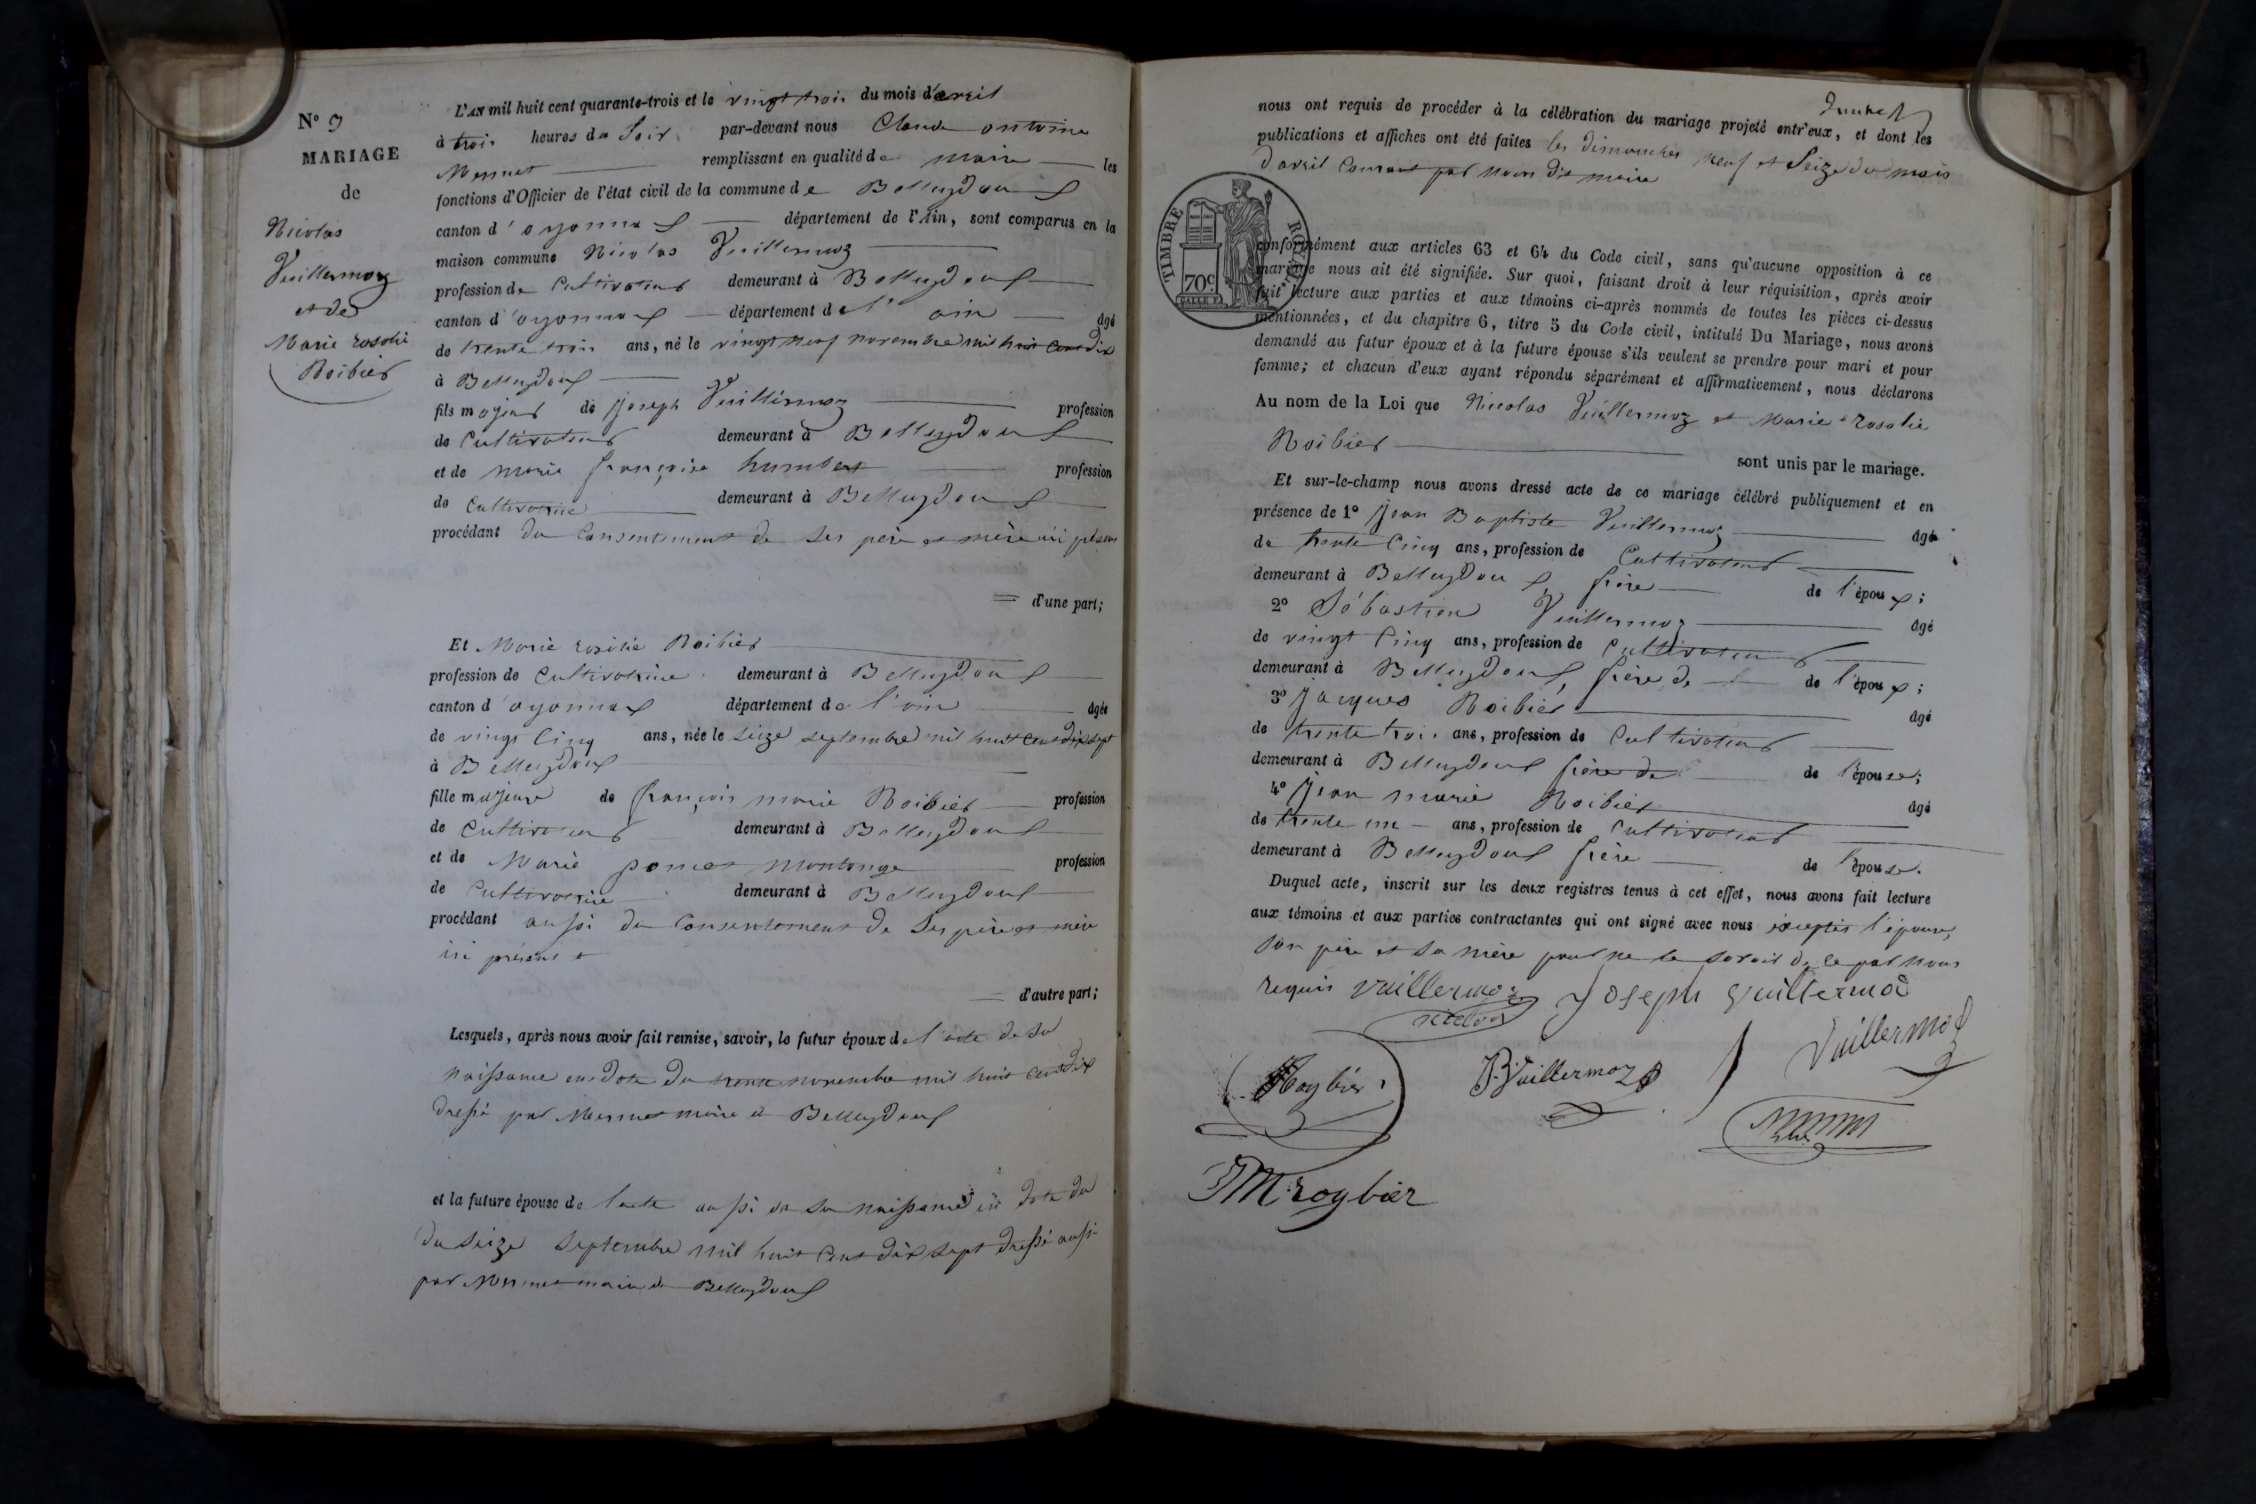 N° 9
MARIAGE
de
Nicolas
Vuillermoz
et de
Marie rosalie
Roibier
L'AN mil huit cent quarante-trois et le vingt trois du mois d'avril
à trois heures du Soir par-devant nous Claude antoine
Mermet remplissant en qualité de maire les
fonctions d'Officier de l'état civil de la commune de Belleydoux
canton d'oyonnax département de l'Ain, sont comparus en la
maison commune Nicolas Vuillermoz
profession de Cultivateur demeurant à Belleydoux
canton d'oyonnax département de l'ain âgé
de trente trois ans, né le vingt neuf novembre mil huit cent dix
à Belleydoux
fils majeur de joseph Vuillermoz profession
de Cultivateur demeurant à Belleydoux
et de marie françoise humbert profession
de Cultivatrice demeurant à Belleydoux
procédant du Consentement de ses père et mère ici présens
d'une part;
Et Marie rosalie Roibier
profession de Cultivatrice demeurant à Belleydoux
canton d'oyonnax département de l'ain âgée
de vingt Cinq ans, née le seize septembre mil huit cent dix sept
à Belleydoux
fille majeure de françois marie Roibier profession
de Cultivateur demeurant à Belleydoux
et de Marie poncet montange profession
de Cultivatrice demeurant à Belleydoux
procédant aussi du Consentement de Ses père et mère
ici présens
d'autre part;
Lesquels, après nous avoir fait remise, savoir, le futur époux de l'acte de sa
naissance en date du trente novembre mil huit cent dix
dressé par Mermet maire à Belleydoux
et la future épouse de l'acte aussi de sa naissance en date du
du seize Septembre mil huit Cent dix sept dressé aussi
par Mermet maire de Belleydoux
nous ont requis de procéder à la célébration du mariage projeté entr'eux, et dont les
publications et affiches ont été faites les dimanches neuf et Seize du mois
d'avril Courant par nous dit maire
TIMBRE ROYAL
70c
conformément aux articles 63 et 64 du Code civil, sans qu'aucune opposition à ce
mariage nous ait été signifiée. Sur quoi, faisant droit à leur réquisition, après avoir
fait lecture aux parties et aux témoins ci-après nommés de toutes les pièces ci-dessus
mentionnées, et du chapitre 6, titre 5 du Code civil, intitulé Du Mariage, nous avons
demandé au futur époux et à la future épouse s'ils veulent se prendre pour mari et pour
femme; et chacun d'eux ayant répondu séparément et affirmativement, nous déclarons
Au nom de la Loi que Nicolas Vuillermoz et Marie rosalie
Roibier
sont unis par le mariage.
Et sur-le-champ nous avons dressé acte de ce mariage célébré publiquement et en
présence de 1° Jean Baptiste Vuillermoz âgé
de trente Cinq ans, profession de Cultivateur
demeurant à Belleydoux frère de l'époux;
2° Sébastien Vuillermoz âgé
de vingt Cinq ans, profession de Cultivateur
demeurant à Belleydoux, frère de de l'époux;
3° Jacques Roibier âgé
de trente trois ans, profession de Cultivateur
demeurant à Belleydoux frère de de l'épouse;
4° Jean marie Roibier âgé
de trente un ans, profession de Cultivateur
demeurant à Belleydoux frère de l'épouse.
Duquel acte, inscrit sur les deux registres tenus à cet effet, nous avons fait lecture
aux témoins et aux parties contractantes qui ont signé avec nous exceptés l'épouse,
son père et sa mère pour ne le savoir de ce par nous
requis vuillermoz Joseph vuillermoz
nicolas
Roybier B. Vuillermoz Vuillermoz
JM. roybier